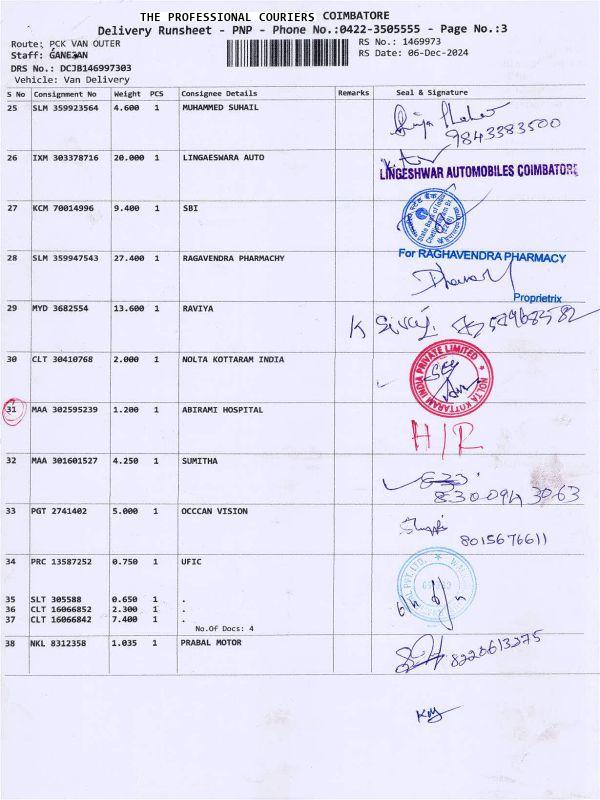 THE PROFESSIONAL COURIERS COIMBATORE
Delivery Runsheet - PNP - Phone No.:0422-3505555 - Page No.:3
Route: PCK VAN OUTER RS No.: 1469973
Staff: GANESAN RS Date: 06-Dec-2024
DRS No.: DCJB146997303
Vehicle: Van Delivery
S No Consignment No Weight PCS Consignee Details Remarks Seal & Signature
25 SLM 359923564 4.600 1 MUHAMMED SUHAIL
9843383500
26 IXM 303378716 20.000 1 LINGAESWARA AUTO
LINGESHWAR AUTOMOBILES COIMBATORE
27 KCM 70014996 9.400 1 SBI
28 SLM 359947543 27.400 1 RAGAVENDRA PHARMACHY
For RAGHAVENDRA PHARMACY
Proprietrix
29 MYD 3682554 13.600 1 RAVIYA
30 CLT 30410768 2.000 1 NOLTA KOTTARAM INDIA
NOLTA KOTTARAM INDIA PRIVATE LIMITED
31 MAA 302595239 1.200 1 ABIRAMI HOSPITAL
H/R
32 MAA 301601527 4.250 1 SUMITHA
33 PGT 2741402 5.000 1 OCCCAN VISION
8015676611
34 PRC 13587252 0.750 1 UFIC
35 SLT 305588 0.650 1 .
36 CLT 16066852 2.300 1 .
37 CLT 16066842 7.400 1 .
No.Of Docs: 4
38 NKL 8312358 1.035 1 PRABAL MOTOR
8220613275